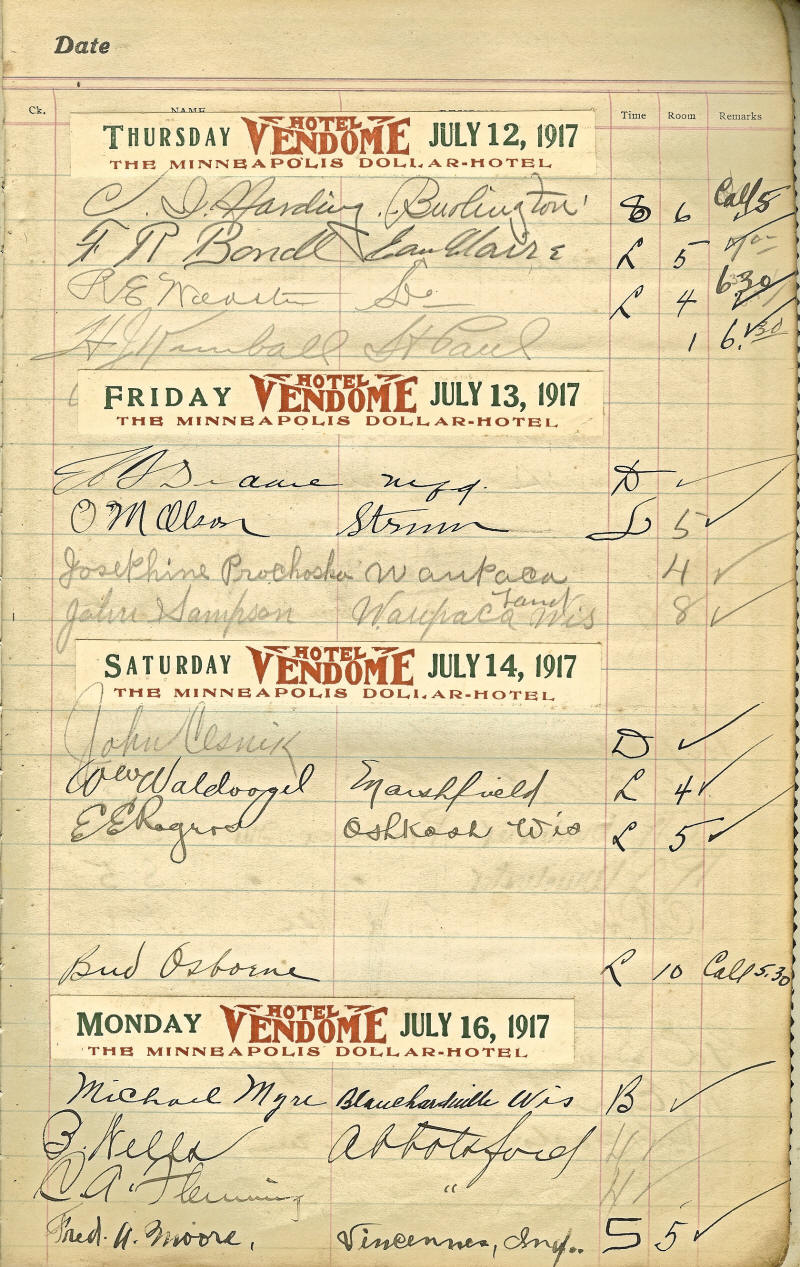 Date
Ck. NAME Time Room Remarks
THURSDAY HOTEL VENDOME JULY 12, 1917
THE MINNEAPOLIS DOLLAR-HOTEL
C. I. Harding Burlington S 6 Call 5
F R Bondt Eau Claire L 5
R E Webster Do L 4 6 30
H J Kimball St Paul 1 6.30
FRIDAY HOTEL VENDOME JULY 13, 1917
THE MINNEAPOLIS DOLLAR-HOTEL
Duane D ✓
O M Olson Strum L 5 ✓
Josephine Prochoska Waupaca 4 ✓
John Sampson Waupaca Wis 8 ✓
SATURDAY HOTEL VENDOME JULY 14, 1917
THE MINNEAPOLIS DOLLAR-HOTEL
John Cesnik D ✓
Wm Waldvogel Marshfield L 4 ✓
E E Rogers Oshkosh Wis L 5 ✓
Bud Osborne L 10 Call 5.30
MONDAY HOTEL VENDOME JULY 16, 1917
THE MINNEAPOLIS DOLLAR-HOTEL
Michael Myre Blanchardville Wis B ✓
B. Wells Abbotsford 4 ✓
C. A. Fleming " 4 ✓
Fred. A. Moore, Vincennes, Ind.. S 5 ✓